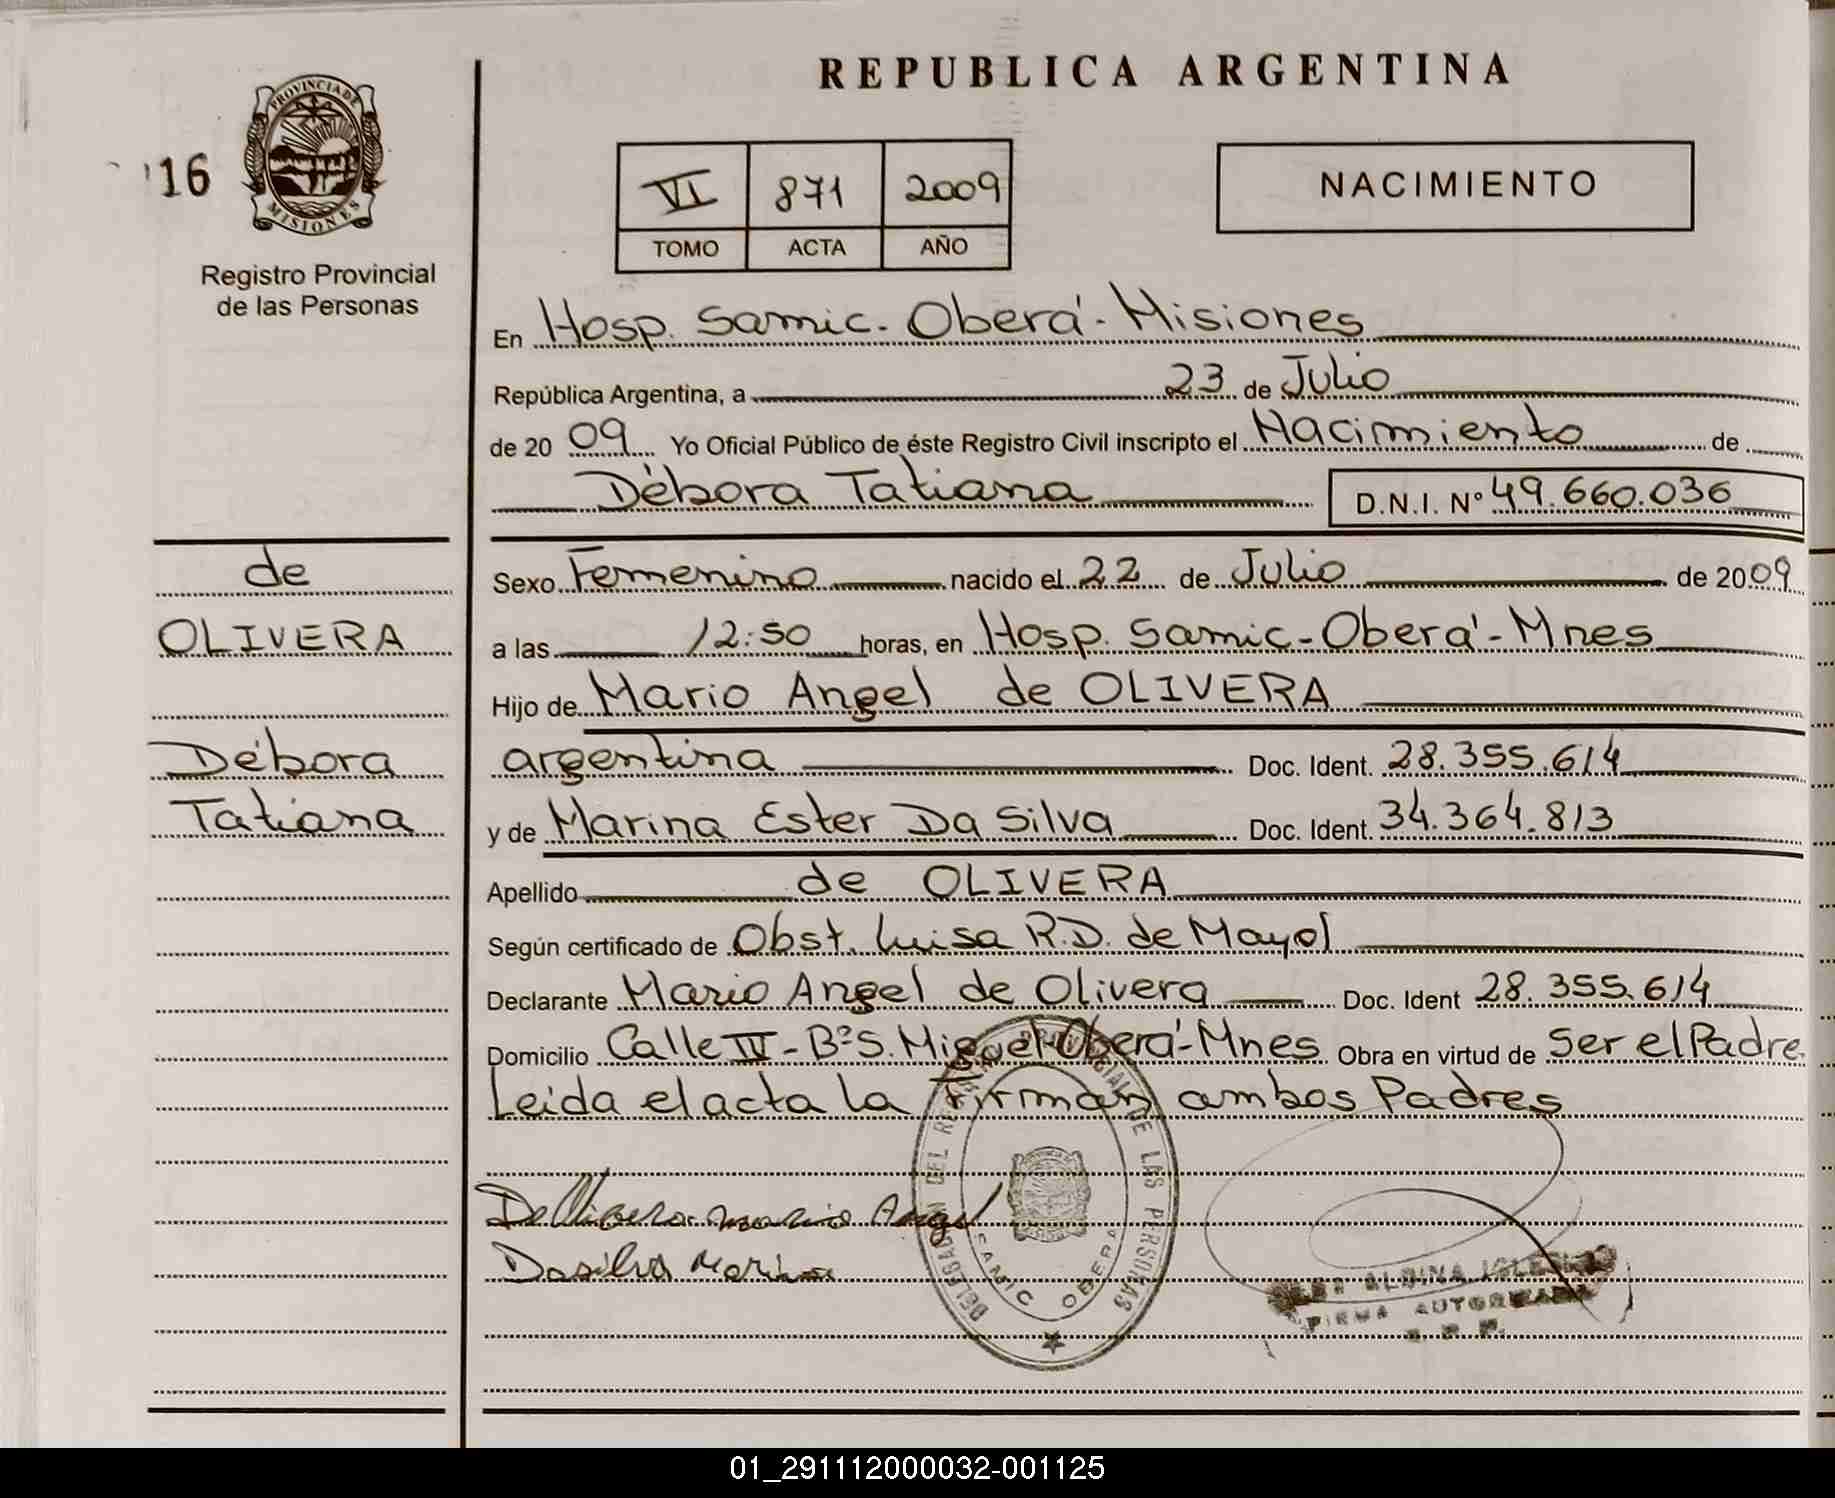 REPUBLICA ARGENTINA
PROVINCIA DE
MISIONES
16
Registro Provincial
de las Personas
VI 871 2009
TOMO ACTA AÑO
NACIMIENTO
En Hosp. Samic - Oberá - Misiones
República Argentina, a 23 de Julio
de 20 09 Yo Oficial Público de éste Registro Civil inscripto el Nacimiento de
Débora Tatiana D.N.I. Nº 49.660.036
de
OLIVERA
Débora
Tatiana
Sexo Femenino nacido el 22 de Julio de 2009
a las 12:50 horas, en Hosp. Samic - Oberá - Mnes
Hijo de Mario Angel de OLIVERA
argentina Doc. Ident. 28.355.614
y de Marina Ester Da Silva Doc. Ident. 34.364.813
Apellido de OLIVERA
Según certificado de Obst. Luisa R.D. de Mayol
Declarante Mario Angel de Olivera Doc. Ident 28.355.614
Domicilio Calle IV - Bº S. Miguel Oberá - Mnes Obra en virtud de Ser el Padre
Leida el acta la Firman ambos Padres
De Olivera mario Angel
Dasilva Marina
DELEGACION DEL REGISTRO PROVINCIAL DE LAS PERSONAS
SAMIC OBERA
ALBINA IGLESIAS
FIRMA AUTORIZADA
R. P. P.
01_291112000032-001125